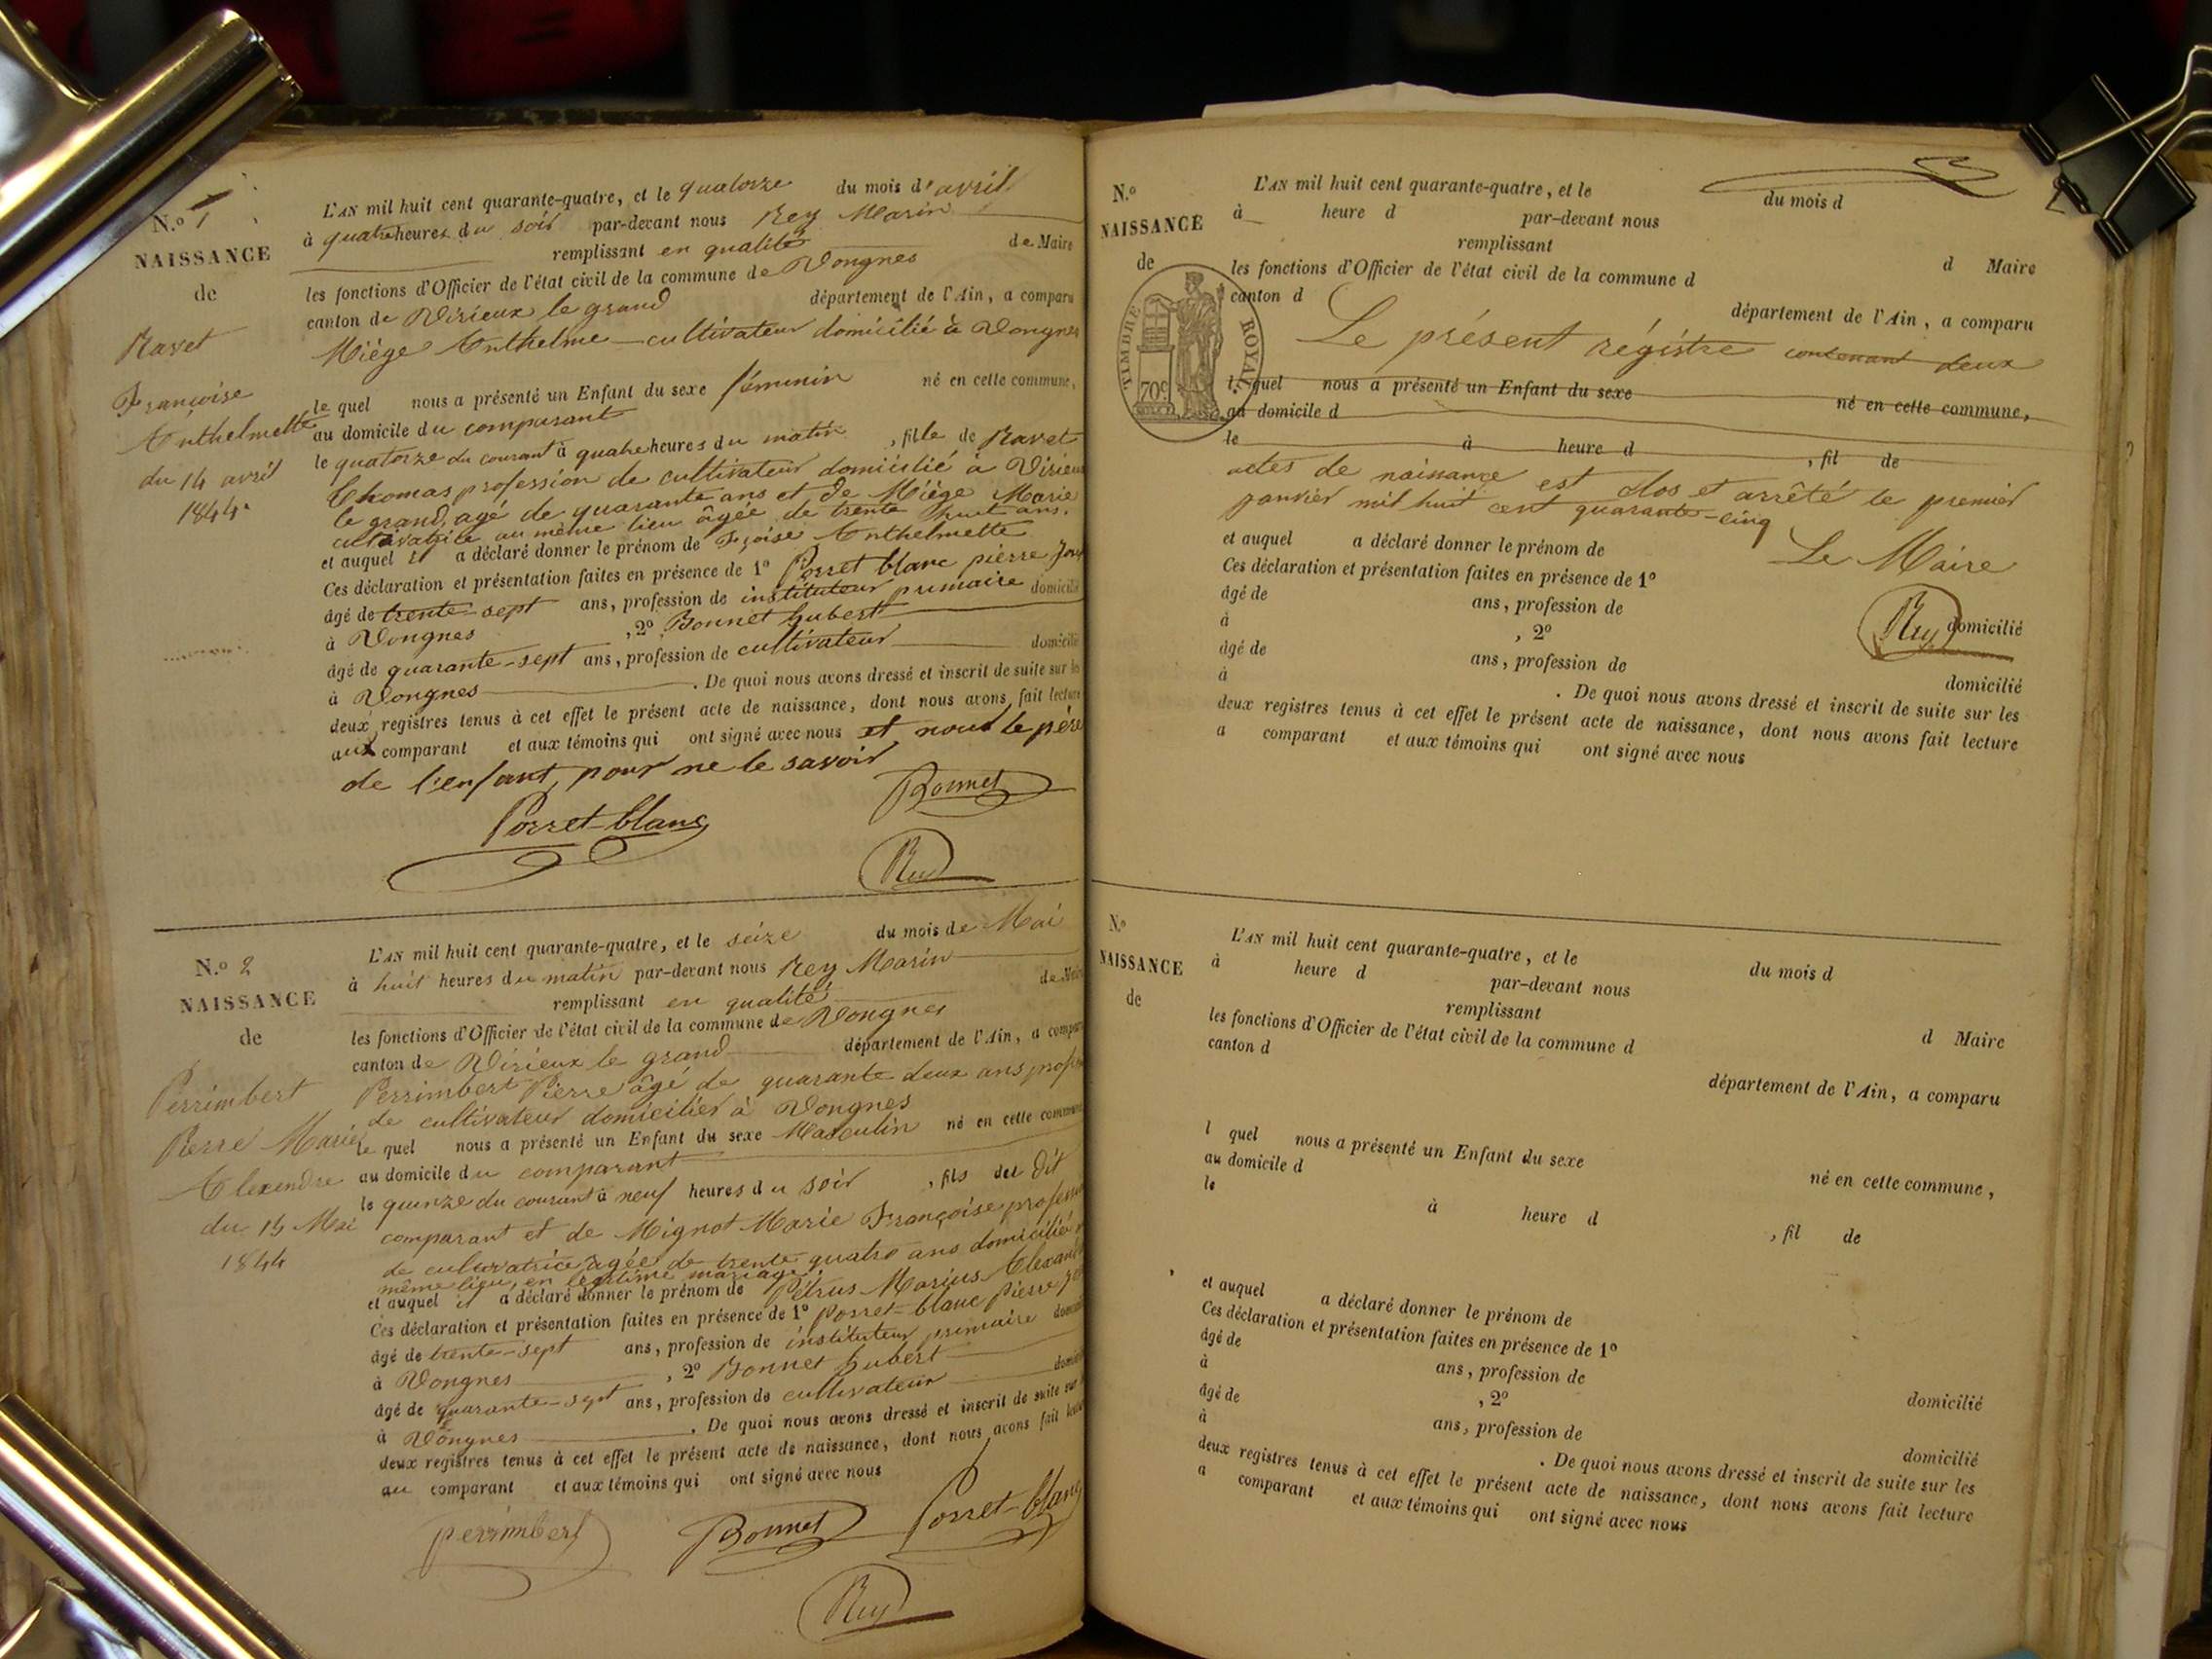 N.º 1
NAISSANCE
de
Ravet
Françoise
Anthelmette
du 14 avril
1844.
L'AN mil huit cent quarante-quatre, et le quatorze du mois d'avril
à quatre heures du soir par-devant nous Rey Marin
remplissant en qualité de Maire
les fonctions d'Officier de l'état civil de la commune de Vongnes
canton de Virieux le grand département de l'Ain, a comparu
Miège Anthelme cultivateur domicilié à Vongnes
le quel nous a présenté un Enfant du sexe féminin né en cette commune,
au domicile du comparant
le quatorze du courant à quatre heures du matin, fille de Ravet
Thomas profession de cultivateur domicilié à Virieux
le grand, agé de quarante ans et de Miège Marie
cultivatrice au même lieu âgée de trente huit ans.
et auquel il a déclaré donner le prénom de Fçoise Anthelmette
Ces déclaration et présentation faites en présence de 1º Porret blanc pierre
âgé de trente-sept ans, profession de instituteur primaire domicilié
à Vongnes, 2º Bonnet hubert
âgé de quarante-sept ans, profession de cultivateur domicilié
à Vongnes. De quoi nous avons dressé et inscrit de suite sur les
deux registres tenus à cet effet le présent acte de naissance, dont nous avons fait lecture
aux comparant et aux témoins qui ont signé avec nous et nous le père
de l'enfant, pour ne le savoir
Bonnet
Porret-blanc
Rey
N.º 2
NAISSANCE
de
Perrimbert
Pierre Marie
Alexendre
du 15 Mai
1844
L'AN mil huit cent quarante-quatre, et le seize du mois de Mai
à huit heures du matin par-devant nous Rey Marin
remplissant en qualité de Maire
les fonctions d'Officier de l'état civil de la commune de Vongnes
canton de Virieux le grand département de l'Ain, a comparu
Perrimbert Pierre âgé de quarante deux ans
de cultivateur domicilier à Vongnes
le quel nous a présenté un Enfant du sexe Masculin né en cette commune
au domicile du comparant
le quinze du courant à neuf heures du soir, fils du dit
comparant et de Mignot Marie Françoise
de cultivatrice agée de trente quatre ans domicilié
même lieu, en légitime mariage.
et auquel il a déclaré donner le prénom de Pétrus Marius
Ces déclaration et présentation faites en présence de 1º Porret-blanc Pierre
âgé de trente-sept ans, profession de instituteur primaire
à Vongnes, 2º Bonnet hubert
âgé de quarante-sept ans, profession de cultivateur
à Vongnes. De quoi nous avons dressé et inscrit de suite sur
deux registres tenus à cet effet le présent acte de naissance, dont nous avons fait
au comparant et aux témoins qui ont signé avec nous
perrimbert Bonnet Porret-blanc
Rey
2
N.º
NAISSANCE
de
TIMBRE ROYAL
70c
L'AN mil huit cent quarante-quatre, et le du mois d
à heure d par-devant nous
remplissant
d Maire
les fonctions d'Officier de l'état civil de la commune d
canton d département de l'Ain, a comparu
Le présent régistre contenant deux
l quel nous a présenté un Enfant du sexe né en cette commune,
au domicile d
le à heure d, fil de
actes de naissance est clos et arrêté le premier
janvier mil huit cent quarante-cinq
et auquel a déclaré donner le prénom de
Le Maire
Ces déclaration et présentation faites en présence de 1º
âgé de ans, profession de
Rey
domicilié
à, 2º
âgé de ans, profession de
domicilié
à. De quoi nous avons dressé et inscrit de suite sur les
deux registres tenus à cet effet le présent acte de naissance, dont nous avons fait lecture
a comparant et aux témoins qui ont signé avec nous
N.º
NAISSANCE
de
L'AN mil huit cent quarante-quatre, et le du mois d
à heure d par-devant nous
remplissant
d Maire
les fonctions d'Officier de l'état civil de la commune d
canton d département de l'Ain, a comparu
l quel nous a présenté un Enfant du sexe né en cette commune,
au domicile d
le à heure d, fil de
et auquel a déclaré donner le prénom de
Ces déclaration et présentation faites en présence de 1º
âgé de ans, profession de
domicilié
à, 2º
âgé de ans, profession de
domicilié
à. De quoi nous avons dressé et inscrit de suite sur les
deux registres tenus à cet effet le présent acte de naissance, dont nous avons fait lecture
a comparant et aux témoins qui ont signé avec nous